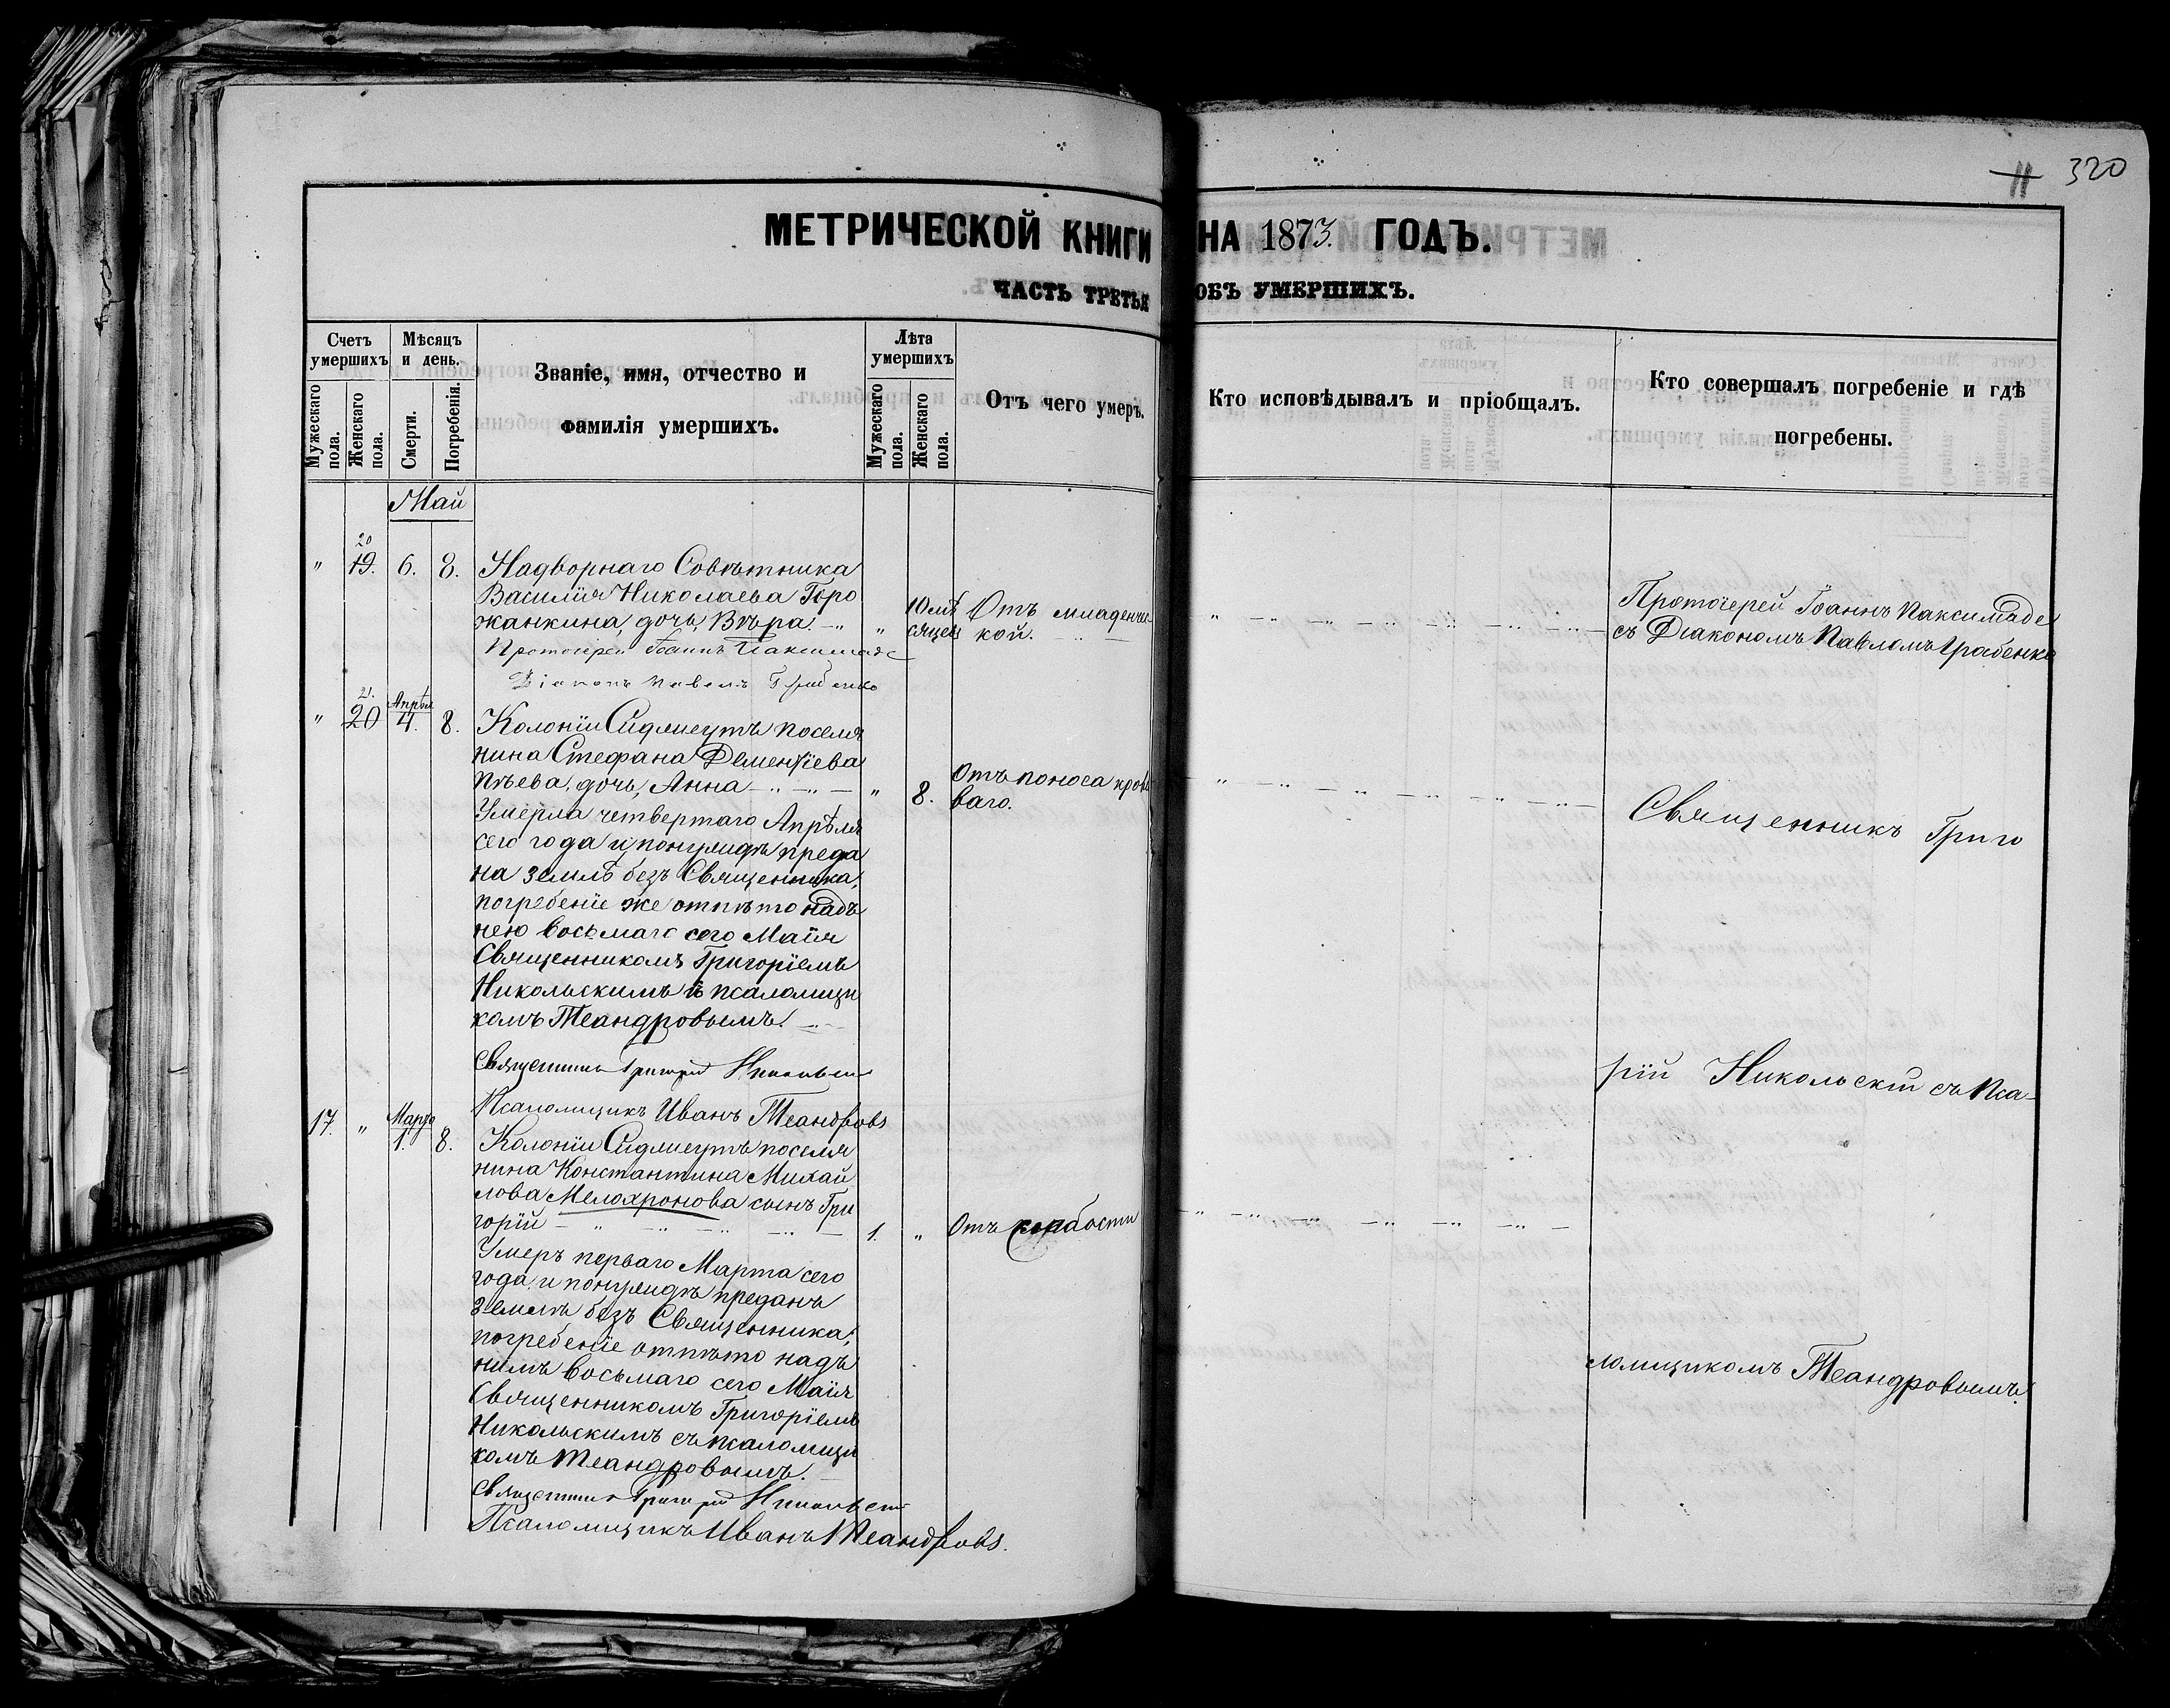 320
11
МЕТРИЧЕСКОЙ КНИГИ НА 1873. ГОДЪ.
ЧАСТЬ ТРЕТЬЯ ОБЪ УМЕРШИХЪ.
Счетъ умершихъ
Мужескаго пола.
Женскаго пола.
Мѣсяцъ и день.
Смерти.
Погребенія.
Званіе, имя, отчество и
фамилія умершихъ.
Лѣта умершихъ
Мужескаго пола.
Женскаго пола.
Отъ чего умеръ.
Кто исповѣдывалъ и пріобщалъ.
Кто совершалъ погребеніе и гдѣ
погребены.
Май
20
" 19. 6. 8. Надворнаго Совѣтника
Василія Николаева Горо
жанкина, дочь, Вѣра. "
Протоіерей Іоаннъ Паксимаде
Діаконъ Павелъ Грабенко
" 10 мѣ
сяцевъ
Отъ младенче-
кой.
Протоіерей Іоаннъ Паксимаде
съ Діакономъ Павломъ Грабенко
21.
" 20 Апрѣля 4. 8. Колоніи Сидлиеутъ поселя
нина Стефана Дементіева
Пѣева, дочь, Анна
Умерла четвертаго Апрѣля
сего года и понулидѣ преда
на землѣ безъ Священника,
погребеніе же отпѣто надъ
нею восьмаго сего Маія
Священникомъ Григоріемъ
Никольскимъ и псаломщи
комъ Теандровымъ.
Священникъ Григорій Никольскій
Псаломщикъ Иванъ Теандровъ
" 8. Отъ поноса крова
ваго.
Священникъ Григо
рій Никольскій съ Пса-
ломщикомъ Теандровымъ.
17. " Марта 1. 8. Колоніи Сидлиеутъ поселя
нина Константина Михай
лова Мелохронова сынъ Гри
горій
Умеръ перваго Марта сего
года, и понулидѣ преданъ
землѣ безъ Священника;
погребеніе отпѣто надъ
нимъ восьмаго сего Маія
Священникомъ Григоріемъ
Никольскимъ съ псаломщи
комъ Теандровымъ.
Священникъ Григорій Никольскій
Псаломщикъ Иванъ Теандровъ.
1. " Отъ слабости